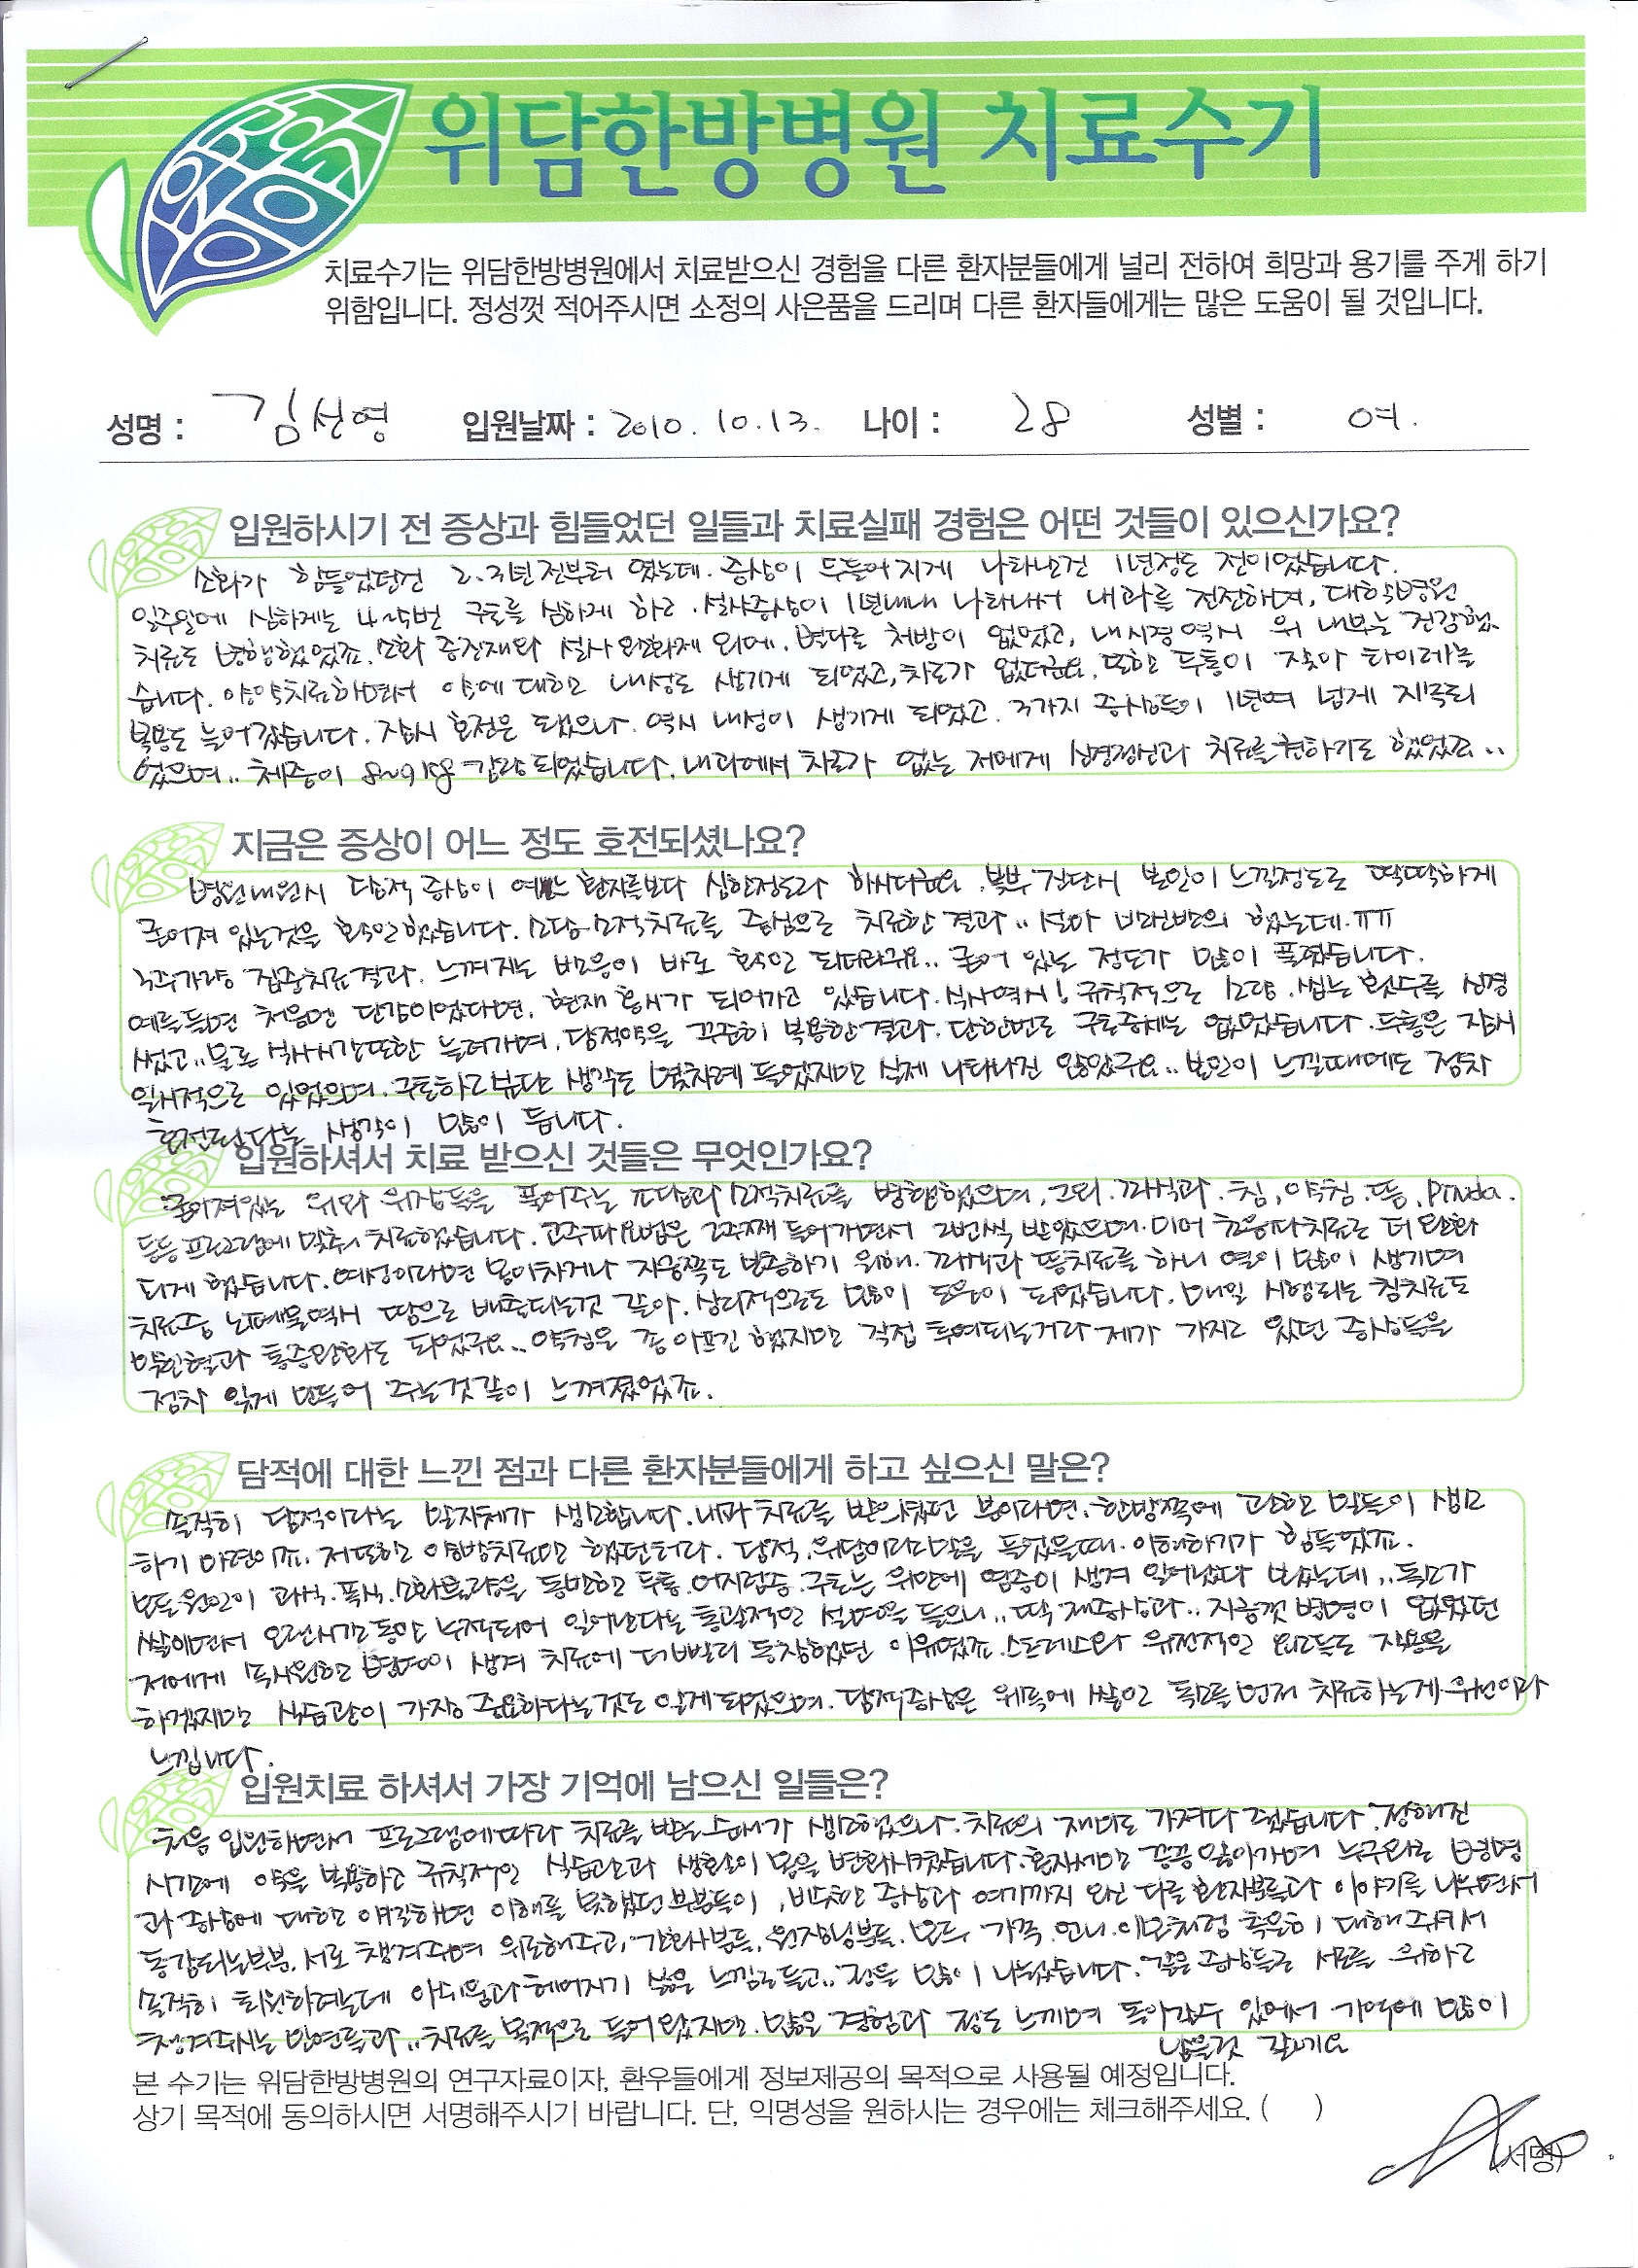 위담한방병원 치료수기
치료수기는 위담한방병원에서 치료받으신 경험을 다른 환자분들에게 널리 전하여 희망과 용기를 주게 하기
위함입니다. 정성껏 적어주시면 소정의 사은품을 드리며 다른 환자들에게는 많은 도움이 될 것입니다.
성명 : 김선영 입원날짜 : 2010. 10. 13. 나이 : 28 성별 : 여.
입원하시기 전 증상과 힘들었던 일들과 치료실패 경험은 어떤 것들이 있으신가요?
소화가 힘들었던건 2.3년전부터 였는데. 증상이 두들어지게 나타난건 1년정도 전이었습니다.
일주일에 심하게는 4~5번 구토를 심하게 하고. 설사증상이 1년내내 나타나서 내과를 전전하며, 대학병원
치료도 병행했었죠. 소화 증진재와 설사 완화제 외에. 별다른 처방이 없었고, 내시경 역시 위 내부는 건강했
습니다. 양약치료하면서 약에 대한 내성도 생기게 되었고, 차도가 없더군요. 또한 두통이 잦아 타이레놀
복용도 늘어갔습니다. 잠시 호전은 됐으나. 역시 내성이 생기게 되었고. 3가지 증상들이 1년여 넘게 지속되
었으며.. 체중이 8~9kg 감량 되었습니다. 내과에서 차도가 없는 저에게 신경정신과 치료를 권하기도 했었죠..
지금은 증상이 어느 정도 호전되셨나요?
병원내원시 담적 증상이 여느 환자들보다 심한정도라 하시더군요. 복부 진단시 본인이 느낄정도로 딱딱하게
굳어져 있는것을 확인했습니다. 소담.소적치료를 중심으로 치료한 결과.. 설마 반신반의 했는데.ㅠㅠ
3주가량 집중치료결과. 느껴지는 반응이 바로 확인 되더라구요.. 굳어 있는 정도가 많이 풀렸습니다.
예를들면 처음엔 단감이었다면, 현재 홍시가 되어가고 있습니다. 식사역시! 규칙적으로 소량. 씹는 횟수를 신경
썼고.. 물론 식사시간또한 늘려가며, 담적약을 꾸준히 복용한결과. 단한번도 구토증세는 없었습니다. 두통은 잠시
일시적으로 있었으며. 구토하고싶다는 생각도 몇차례 들었지만 실제 나타나진 않았구요.. 본인이 느낄때에도 점차
호전된다는 생각이 많이 듭니다.
입원하셔서 치료 받으신 것들은 무엇인가요?
굳어져있는 위와 위장들을 풀어주는 소담과 소적치료를 병행했으며, 그외. 좌석과. 침, 약침. 뜸, Pinda.
등등 프로그램에 맞춰 치료했습니다. 고주파요법은 2주째 들어가면서 2번씩 받았으며. 이어 초음파치료로 더 완화
되게 했습니다. 여성이라면 몸이차거나 자궁쪽도 보충하기 위해. 좌석과 뜸치료를 하니 열이 많이 생기며
치료중 노폐물역시 땀으로 배출되는것 같아. 심리적으로도 많이 도움이 되었습니다. 매일 시행되는 침치료도
통증완화도 되었구요.. 약침은 좀 아프긴 했지만 직접 투여되는거라 제가 가지고 있던 증상들을
점차 잊게 만들어 주는것같이 느껴졌었죠.
담적에 대한 느낀 점과 다른 환자분들에게 하고 싶으신 말은?
솔직히 담적이라는 말자체가 생소합니다. 내과치료를 받으셨던 분이라면. 한방쪽에 관한 말들이 생소
하기 마련이죠. 저또한 양방치료만 했던터라. 담적, 위담이라말을 들었을때. 이해하기가 힘들었죠.
모든 원인이 과식.폭식.소화불량을 동반한 두통.어지럼증.구토는 위안에 염증이 생겨 일어났다 봤는데.. 독소가
쌓이면서 오랜시간동안 누적되어 일어난다는 통괄적인 설명을 들으니.. 딱 제증상과.. 지금껏 병명이 없었던
저에게 속시원한 병명이 생겨 치료에 더빨리 동참했던 이유였죠. 스트레스와 유전적인 요소들도 작용을
하겠지만 식습관이 가장 중요하다는것도 알게되었으며. 담적증상은 위쪽에 쌓인 독소를 먼저 치료하는게 우선이라
느낍니다.
입원치료 하셔서 가장 기억에 남으신 일들은?
처음 입원하면서 프로그램에따라 치료를 받는 순서가 생소했으나. 치료의 재미도 가져다 줬습니다. 정해진
시간에 약을 복용하고 규칙적인 식습관과 생활이 몸을 변화시켰습니다. 혼자서만 끙끙 앓아가며 누구와도 병명
과 증상에 대한 얘길하면 이해를 못했던 부분들이, 비슷한 증상과 여기까지 오신 다른 환자분들과 이야기를 나누면서
동감되는부분, 서로 챙겨주며 위로해주고, 간호사분들, 원장님분들. 모두 가족.언니.이모처럼 혹은히 대해주셔서
솔직히 퇴원하려는데 아쉬움과 헤어지기 싫은 느낌도들고.. 정을 많이 나눴습니다. 같은 증상들로 서로를 위하고
챙겨주시는 인연들과.. 치료를 목적으로 들어왔지만. 많은 경험과 정도 느끼며 돌아갈수 있어서 기억에 많이
남을것 같네요
본 수기는 위담한방병원의 연구자료이자, 환우들에게 정보제공의 목적으로 사용될 예정입니다.
상기 목적에 동의하시면 서명해주시기 바랍니다. 단, 익명성을 원하시는 경우에는 체크해주세요. ( )
(서명)